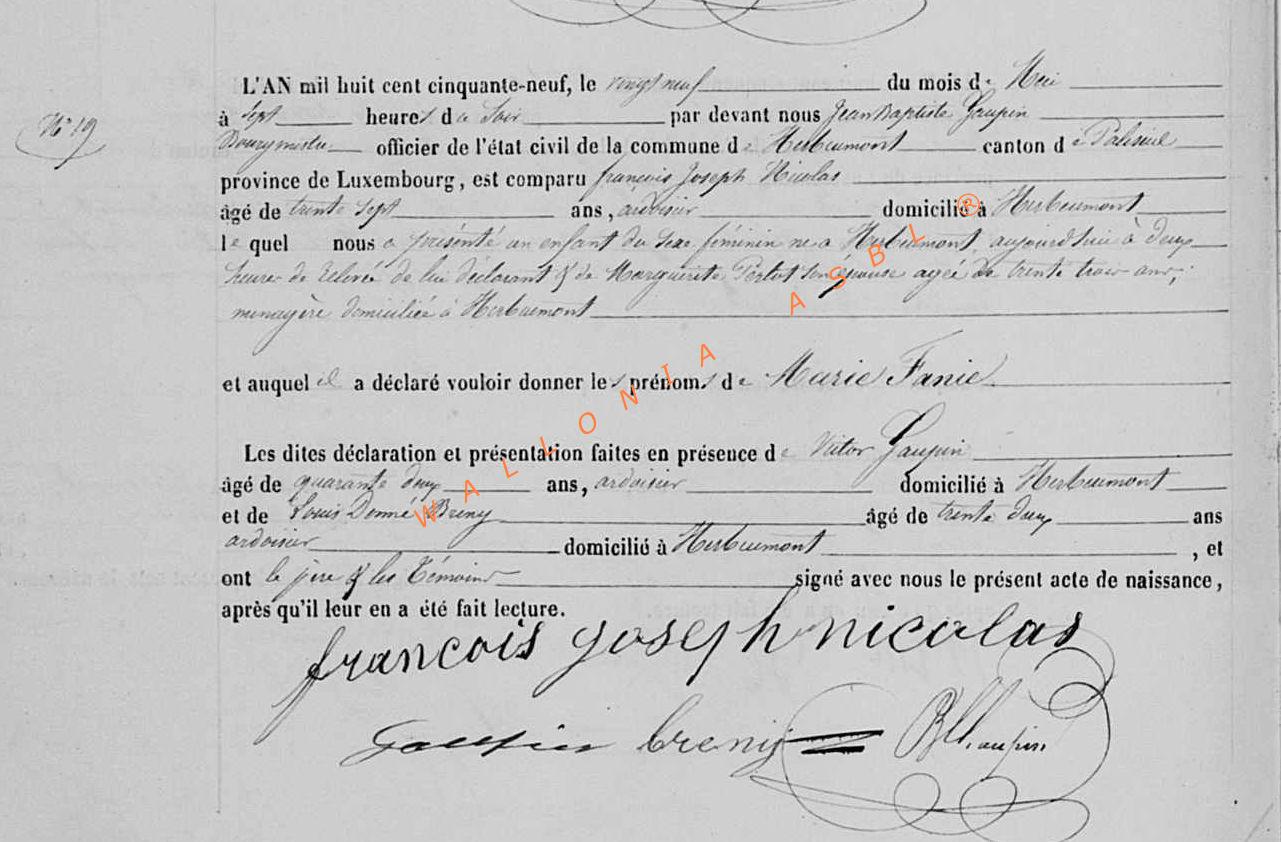 L'AN mil huit cent cinquante-neuf, le vingt neuf du mois de Mai
N° 19
à Sept heures du Soir par devant nous Jean Baptiste Gaupin
Bourgmestre officier de l'état civil de la commune de Herbeumont canton de Paliseul
province de Luxembourg, est comparu françois Joseph Nicolas
âgé de trente sept ans, ardoisier domicilié à Herbeumont
le quel nous a présenté un enfant du sexe féminin né a Herbeumont aujourd'hui à deux
heures de relevée de lui déclarant & de Marguerite son épouse agée de trente trois ans,
ménagère domiciliée à Herbeumont
et auquel il a déclaré vouloir donner les prénoms de Marie Fanie
Les dites déclaration et présentation faites en présence de Victor Gaupin
âgé de quarante deux ans, ardoisier domicilié à Herbeumont
et de Louis Donné Breny âgé de trente deux ans
ardoisier domicilié à Herbeumont, et
ont le père & les témoins signé avec nous le présent acte de naissance,
après qu'il leur en a été fait lecture.
francois joseph nicolas
Gaupin breny JBGaupin
WALLONIA ASBL ®